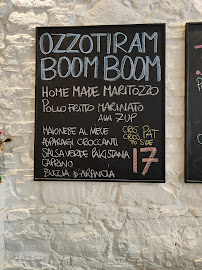 OZZOTIRAM
BOOM BOOM
HOME MADE MARITOZZO
POLLO FRITTO MARINATO
ALLA 7UP
MAIONESE AL MIELE
ASPARAGI CROCCANTI
SALSA VERDE PAKISTANA
CAPRINO
BUCCIA D'ARANCIA
CRIS PAT
CROSS
TO SIDE
17